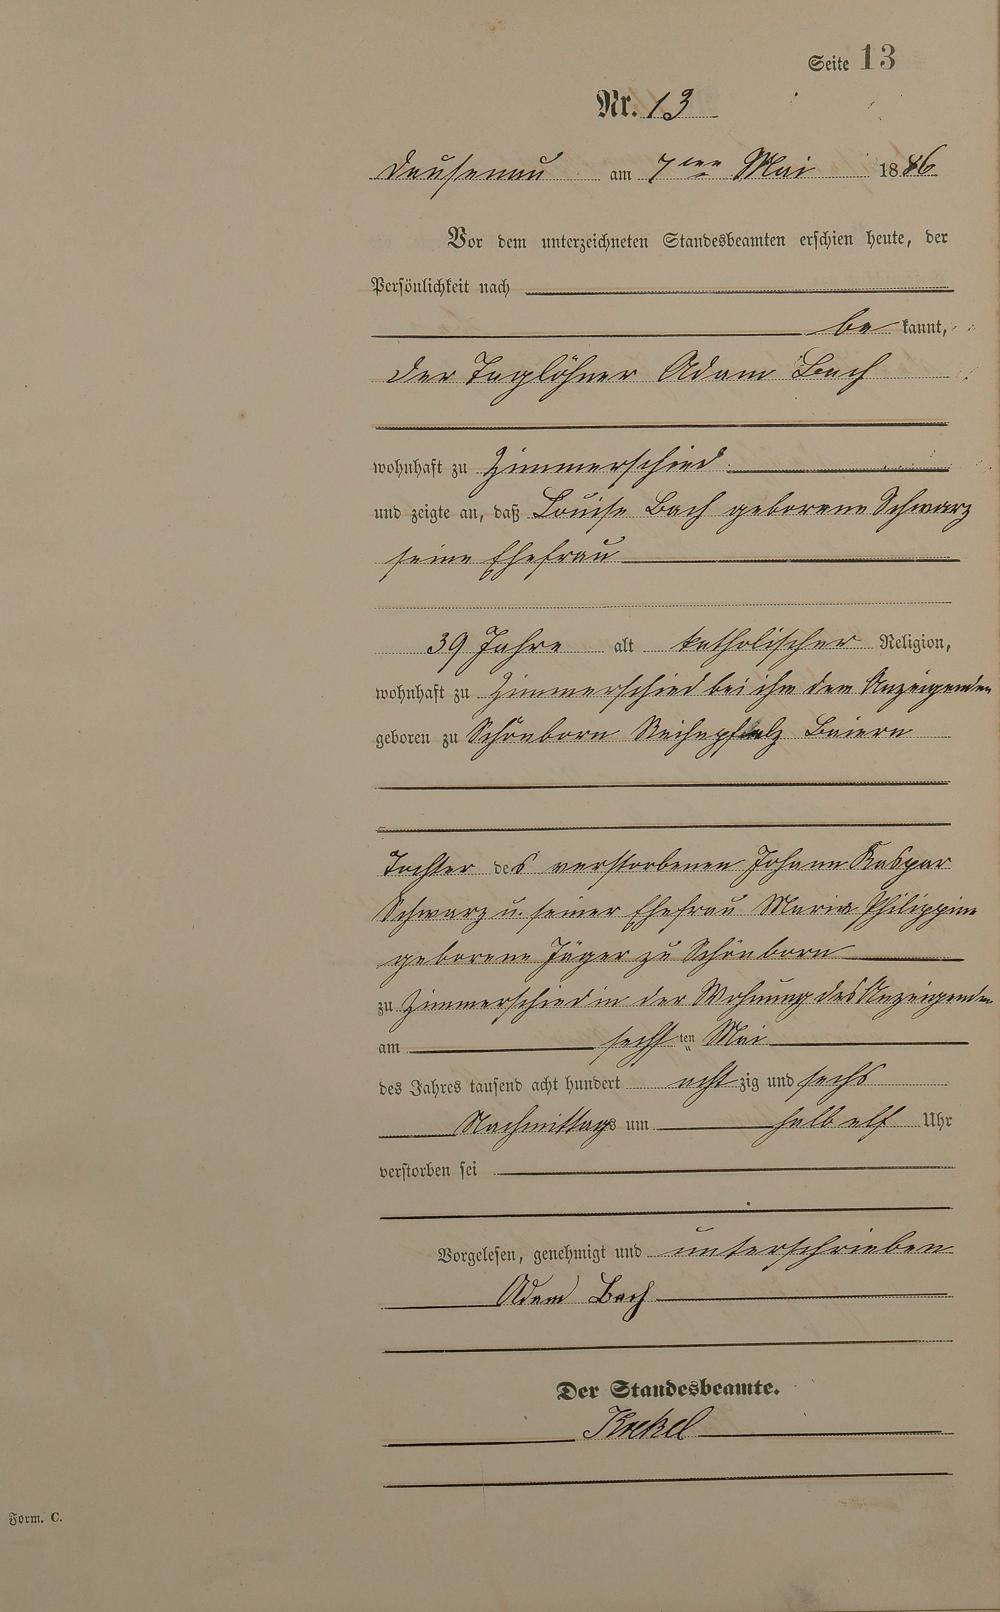 Seite 13
Nr. 13
Dausenau am 7ten Mai 1886
Vor dem unterzeichneten Standesbeamten erschien heute, der
Persönlichkeit nach
be kannt,
der Taglöhner Adam Bach
wohnhaft zu Zimmerschied
und zeigte an, daß Louise Bach geborene Schwarz
seine Ehefrau
39 Jahre alt katholischer Religion,
wohnhaft zu Zimmerschied bei ihm dem Anzeigenden
geboren zu Schönborn Reihnpfalz Baiern
Tochter des verstorbenen Johann Kaspar
Schwarz u. seiner Ehefrau Maria Philippine
geborene Jäger zu Schönborn
zu Zimmerschied in der Wohnung des Anzeigenden
am sechsten Mai
des Jahres tausend acht hundert acht zig und sechs
Nachmittags um halb elf Uhr
verstorben sei
Vorgelesen, genehmigt und unterschrieben
Adam Bach
Der Standesbeamte.
Krekel
Form. C.